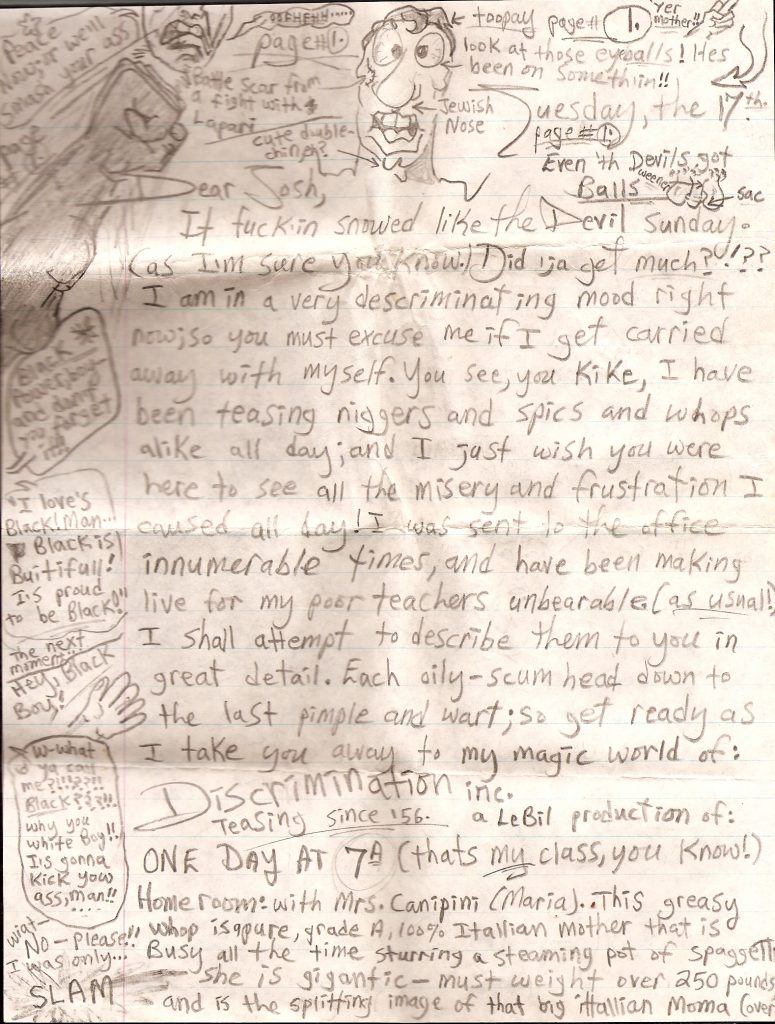 Peace
Now; or we'll
your ass
page
AAEHEHH.....
page #1.
Battle scar from
a fight with
Lapari
cute double-
chin eh?
Jewish
Nose
toopay page # 1. Yer
mother!!
look at those eyeballs! Hes
been on somethiin!!
Tuesday, the 17th.
page # 1.
Even th Devils got
Balls
weener
sac
Dear Josh,
It fuckin snowed like the Devil Sunday.
(as I'm sure you know.) Did 'ja get much?'!??
I am in a very descriminating mood right
now; so you must excuse me if I get carried
away with myself. You see, you Kike, I have
been teasing niggers and spics and whops
alike all day; and I just wish you were
here to see all the misery and frustration I
caused all day! I was sent to the office
innumerable times, and have been making
live for my poor teachers unbearable. (as usual!)
I shall attempt to describe them to you in
great detail. Each oily-scum head down to
the last pimple and wart; so get ready as
I take you away to my magic world of:
Discrimination inc.
Teasing since '56. a LeBil production of:
ONE DAY AT 7A (thats my class, you know!)
Homeroom: with Mrs. Canipini (Maria). This greasy
whop is a pure, grade A, 100% Itallian mother that is
Busy all the time sturring a steaming pot of spaggetti
She is gigantic- must weight over 250 pounds
and is the splitting image of that big ittallian Moma (over
Black
Power, boy-
and don't
you forget
it!!
"I love's
Black! Man...
Black is
Buitifull!
I's proud
to be Black!"
The next
moment:
Hey, Black
Boy!
W-what
ya call
me?!!??!!
Black???!!
why you
white Boy!!
I's gonna
Kick yow
ass, man!!
....
wiat-
NO-Please!!
I was only...
SLAM